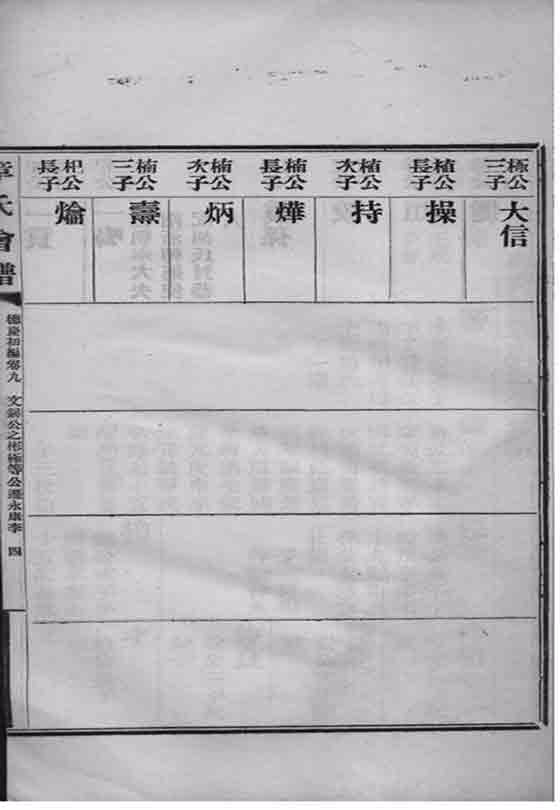 極公三子
大信
植公長子
操
植公次子
持
楠公長子
燁
楠公次子
炳
楠公三子
燾
杞公長子
爚
章氏會譜
德慶初編卷九 文錦公之彬極等公遷永康李 四